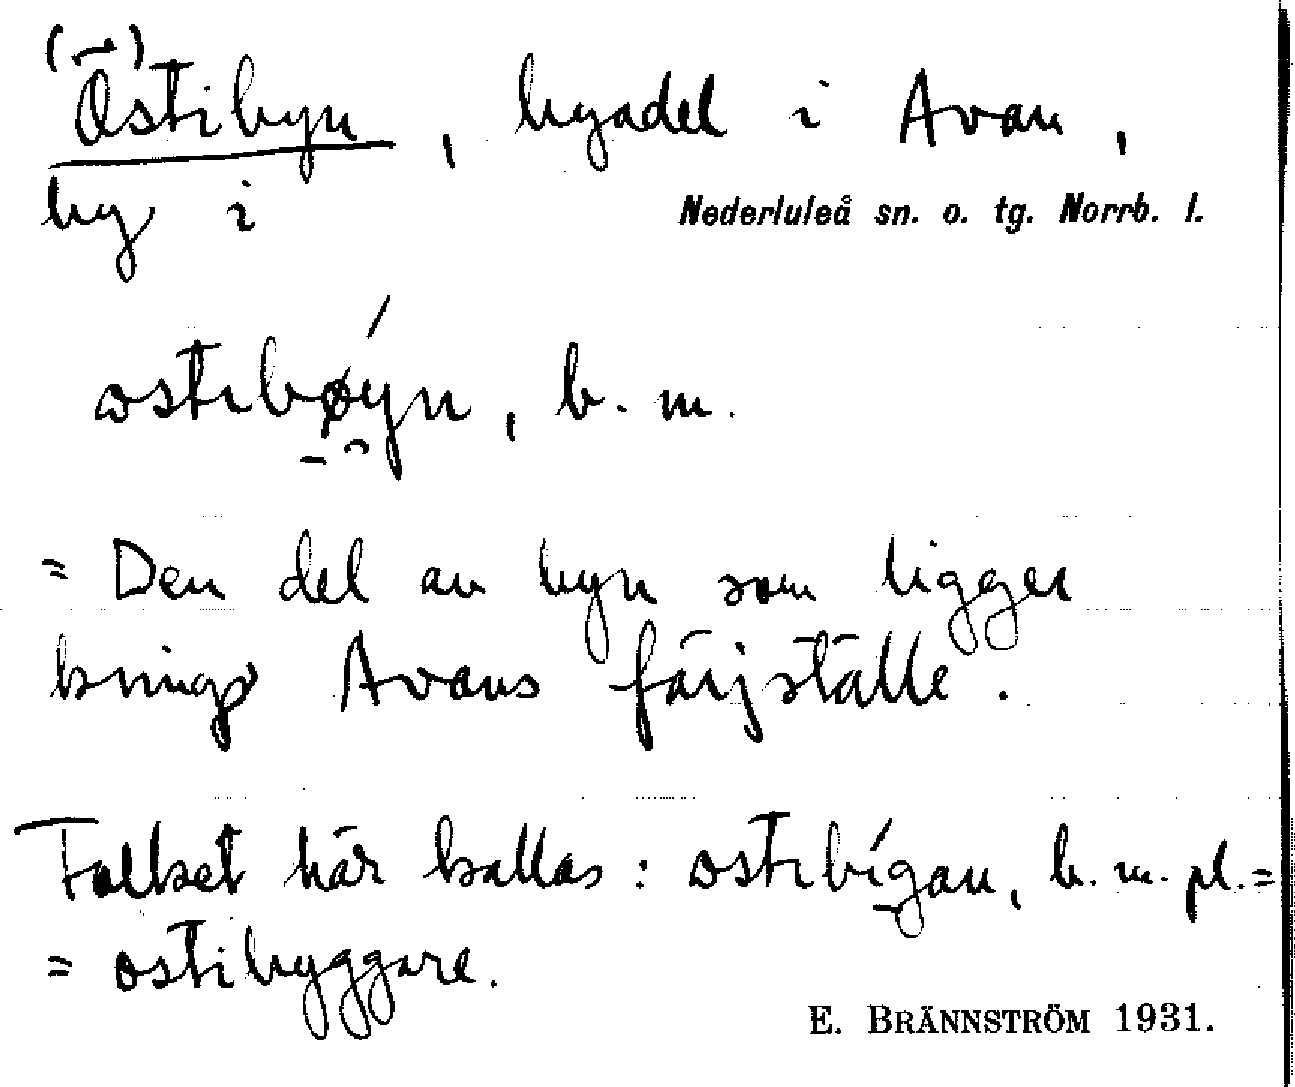 (¨)
Östibyn, byadel i Avan,
by i Nederluleå sn. o. tg. Norrb. l.
ostɩbøýn, b. m.
= Den del av byn som ligger
kring Avans färjställe.
Folket här kallas: ostɩbígan, b. m. pl. =
= ostibyggare.
E. BRÄNNSTRÖM 1931.